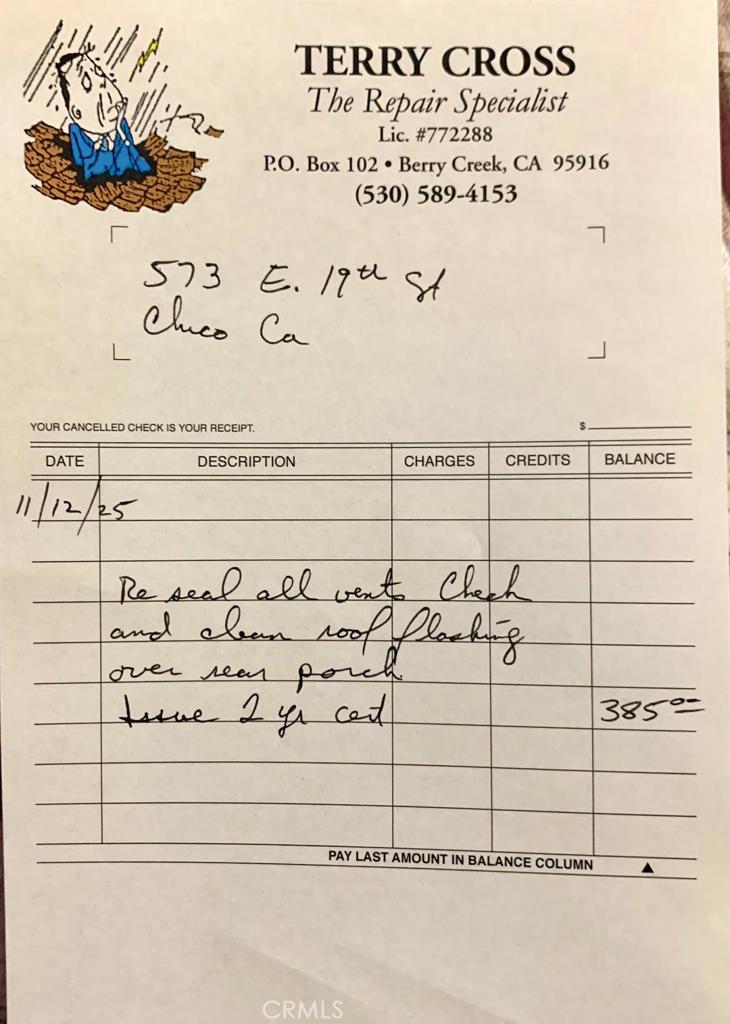 TERRY CROSS
The Repair Specialist
Lic. #772288
P.O. Box 102 • Berry Creek, CA 95916
(530) 589-4153
573 E. 19th St
Chico Ca
YOUR CANCELLED CHECK IS YOUR RECEIPT. $
DATE DESCRIPTION CHARGES CREDITS BALANCE
11/12/25
Re seal all vents Check
and clean roof flashing
over rear porch
Issue 2 yr cert 385.00
PAY LAST AMOUNT IN BALANCE COLUMN ▲
CRMLS